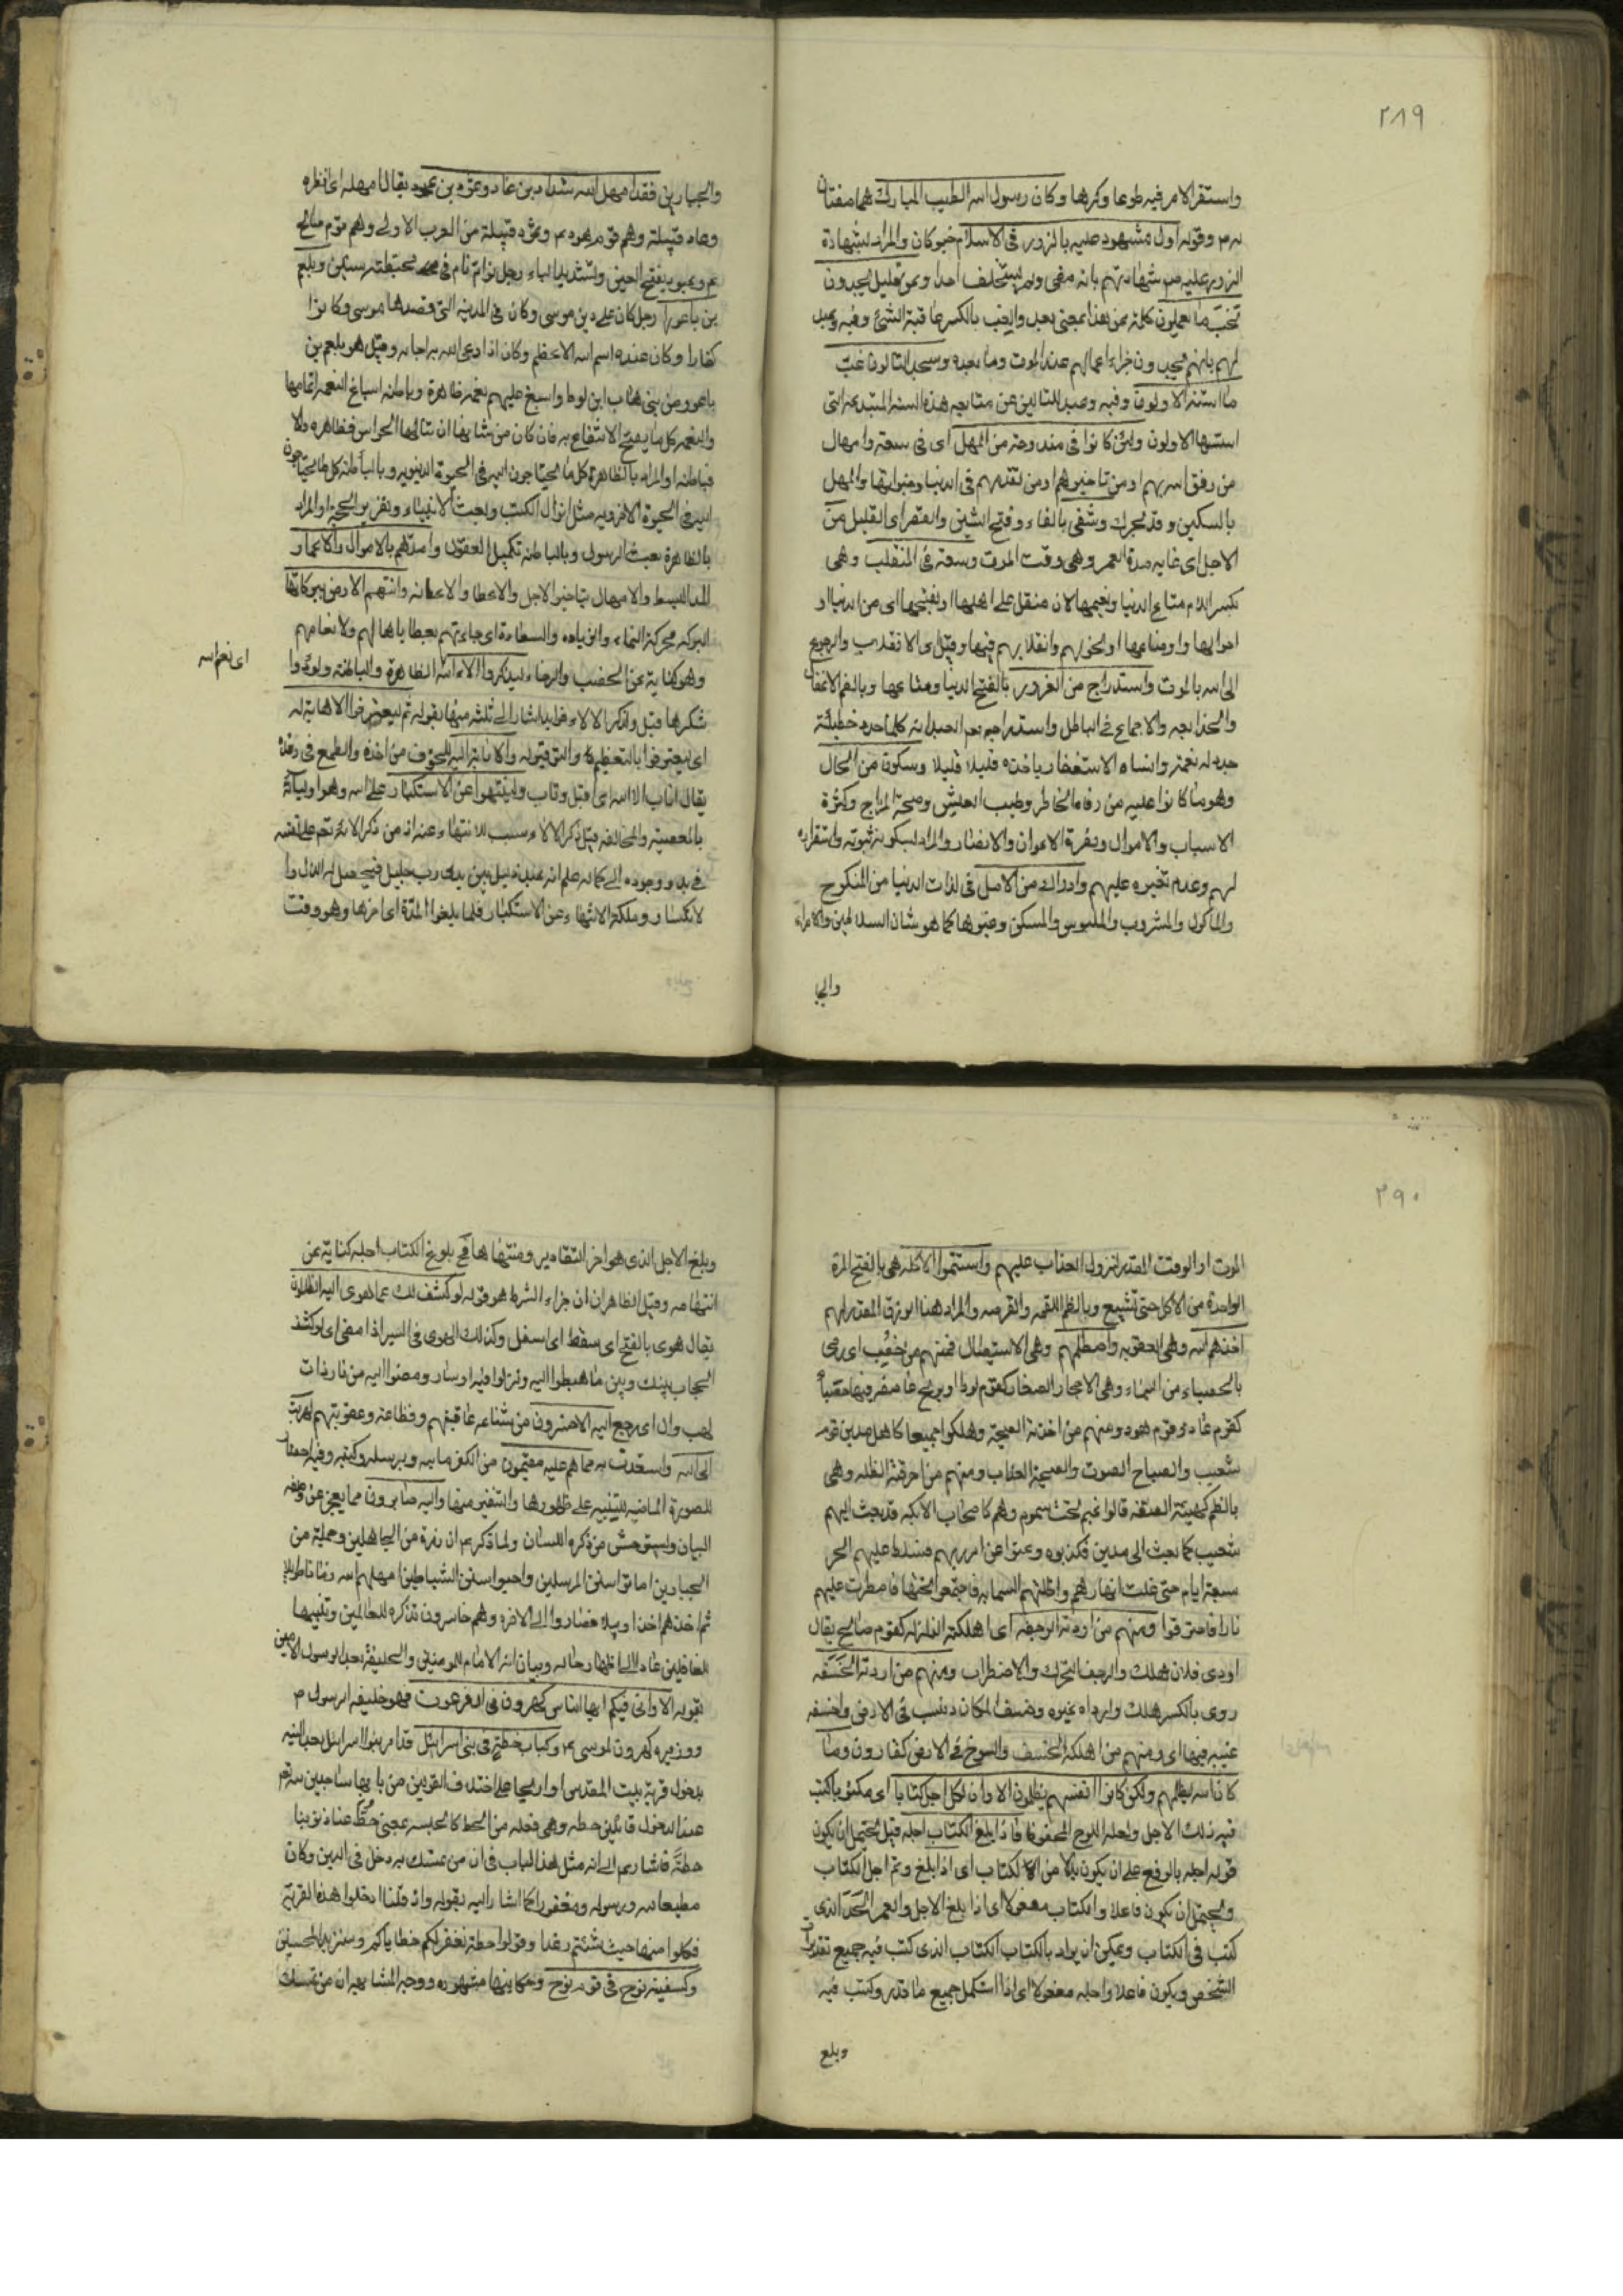 ٢٨٩
واستقر الامر فيه طوعا وكرها وكان رسول الله الطيب المبارك هما صفتان
له م وقوله اول مشهود عليه بالزور فى الاسلام خبر كان والمراد بشهادة
الزور عليه ص شهادتهم بانه مضى ولم يستخلف احدا وعن قليل يجدون
غب ما يعملون كلمة عن هذا بمعنى بعد والغب بالكسر عاقبة الشئ وفيه وعيد
لهم بانهم يجدون جزاء اعمالهم عند الموت وما بعده وسيجد التالون غب
ما اسسه الاولون وفيه وعيد للتالين عن متابعه هذه السنة المبتدعه التى
اسسها الاولون ولئن كانوا فى مندوحة من المهل اى فى سعة وامهال
من رفق الله بهم او من تاخيرهم او من تقدمهم فى الدنيا وخيراتها والمهل
بالسكين وقد يحرك وشفى بالفاء وفتح الشين والقصر اى القليل من
الاجل اى غايه مدة العمر وهى وقت الموت وسعة فى المنقلب وهى
بكسر اللام متاع الدنيا ونعيمها لانه منقلب على اهلها او بفتحها اى من الدنيا او
احوالها واوضاعها او تحولهم وانقلابهم فيها وقيل اى الانقلاب والرجوع
الى الله بالموت واستدراج من الغرور بالفتح الدنيا ومتاعها وبالضم الاغفال
والخديعه والاجماع فى الباطل واستدراجه تعم العبد انه كلما جدد خطيئة
جدد له نعمة وانساه الاستغفار ياخذه قليلا قليلا وسكون من الحال
وهو ما كانوا عليه من رفاه الخاطر وطيب العيش وصحة المزاج وكثرة
الاسباب والاموال ووفرة الاعوان والانصار والمراد بسكونه ثبوته واستقراره
لهم وعدم تغيره عليهم وادراك من الامل فى لذات الدنيا من المنكوح
والماكول والمشروب والملبوس والمسكن وغيرها كما هو شان السلاطين والامراء
والجبا
والجبارين فقد امهل الله شداد بن عاد وثمود بن عبود يقال امهله اى انظره
وعاد قبيلة وهم قوم هود م وثمود قبيلة من العرب الاولى وهم قوم صالح
م وعبود بفتح العين وتشديد الباء رجل نوام نام فى محتطبه سبع سنين وبلعم
بن باعورا رجل كان على دين موسى وكان فى المدينه التى قصدها موسى وكانوا
كفارا وكان عنده اسم الله الاعظم وكان اذا دعى الله به اجابه وقيل هو بلعم بن
باعور من بنى هاب ابن لوط واسبغ عليهم نعمه ظاهرة وباطنه اسباغ النعمه اتمامها
والنعمه كل ما يصح الانتفاع به فان كان من شانها ان تنالها الحواس فظاهره والا
فباطنه او المراد بالظاهرة كل ما يحتاجون اليه فى الحيوة الدنيويه وبالباطنه كل ما يحتاجون
اليه فى الحيوة الاخرويه مثل انزال الكتب وبعث الانبياء وتقرير الحجة او المراد
بالظاهرة بعث الرسول وبالباطنه تكميل العقول وامدهم بالاموال والاعمار
المد البسط والامهال بتاخير الاجل والاعطا والاعانه واتتهم الارض ببركاتها
البركه محركة النماء والزياده والسعادة اى جاءتهم بعطاياها لهم ولانعامهم
وهو كناية عن الخصب والرخاء ليذكروا الاء الله الظاهرة والباطنه ولودوا
اى نعم الله
شكرها قيل وتذكر الالاء فوايد اشار الى ثلثه منها بقوله ثم ليعترفوا الاهابة له
اى ليعترفوا بالتعظيم له والتوقير له والانابة اليه للخوف من اخذه والطمع فى رفده
يقال اناب الى الله اى اقبل وتاب ولينتهوا عن الاستكبار على الله وهو اوليائه
بالمعصية والمخالفه قيل ذكر الالاء سبب للانتهاء عنه اذ من ذكر الائه تعم على نفسه
فى بدو وجوده الى كماله علم انه عبد ذليل بين يدى رب جليل فيحصل له الذل وا
لانكسار وملكة الانتهاء عن الاستكبار فلما بلغوا المدة اى اخرها وهو وقت
٢٩٠
الموت او الوقت المقدر لنزول العذاب عليهم واستتموا الاكله هى بالفتح المرة
الواحدة من الاكل حتى تشبع وبالضم اللقمه والقرصه والمراد هنا الرزق المقدر لهم
اخذهم الله وهى العقوبه واصطلمهم وهى الاستيصال فمنهم من حصب اى رمى
بالحصباء من السماء وهى الاحجار الصغار كقوم لوط او بريح عاصف فيها حصبا
كقوم عاد وقوم هود ومنهم من اخذته الصيحة وهلكوا جميعا كاهل مدين قوم
شعيب والصياح الصوت والصيحة العذاب ومنهم من احرقته الظله وهى
بالضم كهيئة الصفه قالوا غيم تحته سموم وهم كاصحاب الايكه قد بعث اليهم
شعيب كما بعث الى مدين فكذبوه وعتوا عن امر ربهم فسلط عليهم الحر
سبعة ايام حتى غلت انهارهم واظلتهم السحابه فاجتمعوا تحتها فامطرت عليهم
نارا فاحترقوا ومنهم من اودته الرجفه اى اهلكته الزلزله كقوم صالح يقال
اودى فلان هلك والرجف التحرك والاضطراب ومنهم من اردته الخسفه
روى بالكسر هلك وارداه غيره وخسف المكان ذهب فى الارض واخسفه
غيبه فيها اى ومنهم من اهلكه الخسف والسوخ فى الارض كقارون وما
كان الله ليظلمهم ولكن كانوا انفسهم يظلمون الا وان لكل اجل كتابا اى مكتوبا كتب
فيه ذلك الاجل ولعله اللوح المحفوظ فاذا بلغ الكتاب اجله قيل يحتمل ان يكون
قوله اجله بالرفع على ان يكون بدلا من الكتاب اى اذا بلغ وتم اجل الكتاب
ويحتمل ان يكون فاعلا والكتاب مفعولا اى اذا بلغ الاجل والعمر الحد الذى
كتب فى الكتاب ويمكن ان يراد بالكتاب الكتاب الذى كتب فيه جميع تقديرات
الشخص ويكون فاعلا واجله مفعولا اى اذا استكمل جميع ما قدر وكتب فيه
وبلغ
وبلغ الاجل الذى هو اخر التقادير ومنتهاها فى بلوغ الكتاب اجله كناية عن
انتهائه وقيل الظاهر ان جزاء الشرط هو قوله لو كشف لك عما هوى اليه الظلمة
يقال هوى بالفتح اى سقط اى اسفل وكذلك الهوى فى السير اذا مضى اى لو كشف
الحجاب بينك وبين ما هبطوا اليه ونزلوا فيه او سار ومضوا اليه من نار ذات
لهب وال اى رجع اليه الاخسرون من شناعه عاقبتهم وفظاعته وعقوبتهم لهربت
الى الله واستعذت به مما هم عليه مقيمون من الكفر بالله وبرسله وكتبه وفيه احضار
للصورة الماضيه للتنبيه على ظهورها والتنفير منها واليه صائرون مما يعجز عن وصفه
البيان ويستوحش من ذكره اللسان ولما ذكر ع ان زمرة من الجاهلين وجملة من
الجبارين اماتوا سنن المرسلين واحيوا سنن الشياطين امهلهم الله زمانا طويلا
ثم اخذهم اخذا وبيلا فصاروا الى الاخره وهم خاسرون تذكره للعالمين وتنبيها
للغافلين عاد الى اظهار حاله وبيان انه الامام للمومنين والخليفة بعد الرسول الامين
بقوله الا وانى فيكم ايها الناس كهرون فى ال فرعون فهو خليفه الرسول م
ووزيره كهرون لموسى م وكباب حطة فى بنى اسرائيل قد امر بنو اسرائيل بعد التيه
بدخول قرية بيت المقدس او اريحا على اختلاف القولين من بابها ساجدين لله تعم
عند الدخول قائلين حطه وهى فعله من الحط كالجلسه بمعنى حط عنا ذنوبنا
حطة فاشار ع الى انه مثل هذا الباب فى ان من تمسك به دخل فى الدين وكان
مطيعا لله ورسوله ومغفورا كما اشار اليه بقوله واذ قلنا ادخلوا هذه القرية
فكلوا منها حيث شئتم رغدا وقولوا حطة نغفر لكم خطاياكم وسنزيد المحسنين
وكسفينة نوح فى قوم نوح وحكايتها مشهوره ووجه المشابهه ان من تمسك